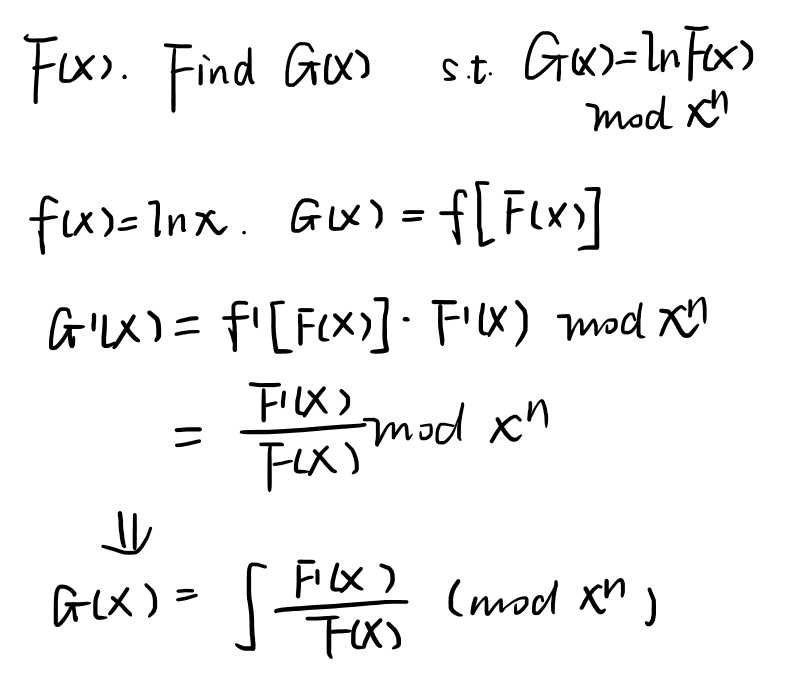 F(x). Find G(x) s.t. G(x)=ln F(x)
mod x^n
f(x)=ln x. G(x) = f[F(x)]
G'(x) = f'[F(x)] · F'(x) mod x^n
= F'(x)/F(x) mod x^n
⇓
G(x) = ∫ F'(x)/F(x) (mod x^n)